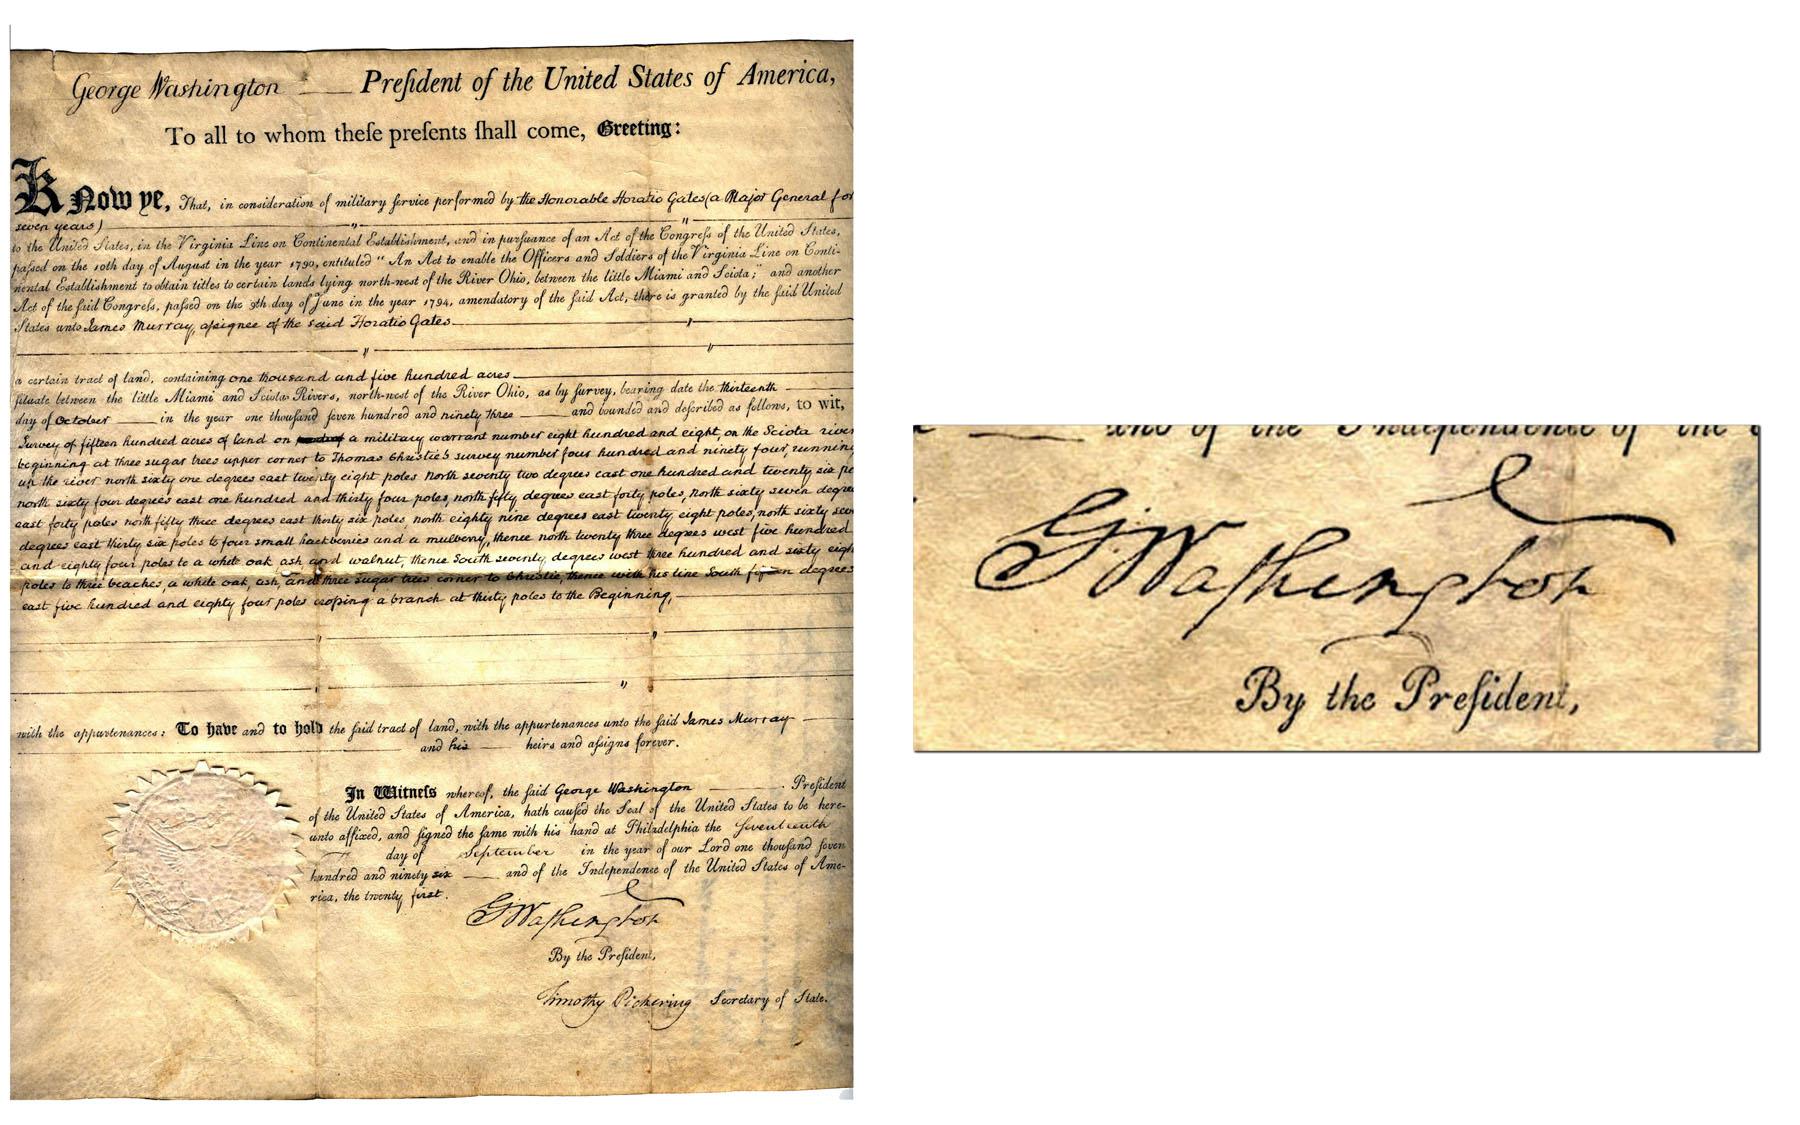 George Washington Preſident of the United States of America,
To all to whom theſe preſents ſhall come, Greeting:
Know ye, That, in conſideration of military ſervice performed by the Honorable Horatio Gates (a Major General for
seven years) "
to the United States, in the Virginia Line on Continental Eſtabliſhment, and in purſuance of an Act of the Congreſs of the United States,
paſſed on the 10th day of Auguſt in the year 1790, entituled “ An Act to enable the Officers and Soldiers of the Virginia Line on Conti-
nental Eſtabliſhment to obtain titles to certain lands lying north-weſt of the River Ohio, between the little Miami and Sciota;" and another
Act of the ſaid Congreſs, paſſed on the 9th day of June in the year 1794, amendatory of the ſaid Act, there is granted by the ſaid United
States unto James Murray, aſsignee of the said Horatio Gates
a certain tract of land, containing one thousand and five hundred acres
ſituate between the little Miami and Sciota Rivers, north-weſt of the River Ohio, as by ſurvey, bearing date the thirteenth
day of October in the year one thouſand ſeven hundred and ninety three and bounded and deſcribed as follows, to wit,
Survey of fifteen hundred acres of land on a military warrant number eight hundred and eight, on the Sciota river
beginning at three sugar trees upper corner to Thomas Christie's survey number four hundred and ninety four, running
up the river north sixty one degrees east twenty eight poles north seventy two degrees east one hundred and twenty six po
north sixty four degrees east one hundred and thirty four poles, north fifty degrees east forty poles, north sixty seven degree
east forty poles north fifty three degrees east thirty six poles, north eighty nine degrees east twenty eight poles, north sixty sev
degrees east thirty six poles to four small hackberries and a mulberry, thence north twenty three degrees west five hundred
and eighty four poles to a white oak ash and walnut, thence South seventy degrees west three hundred and sixty eigh
poles to three beaches, a white oak, ash, and three sugar trees corner to Christie, thence with his line South degrees
east five hundred and eighty four poles croſsing a branch at thirty poles to the Beginning,
with the appurtenances: To have and to hold the ſaid tract of land, with the appurtenances unto the ſaid James Murray
and his heirs and aſſigns forever.
In Witneſs whereof, the ſaid George Washington Preſident
of the United States of America, hath cauſed the Seal of the United States to be here-
unto affixed, and ſigned the ſame with his hand at Philadelphia the ſeventeenth
day of September in the year of our Lord one thouſand ſeven
hundred and ninety six and of the Independence of the United States of Ame-
rica, the twenty first.
GWaſhington
By the Preſident,
Timothy Pickering Secretary of State.
and of the Independence of the
GWaſhington
By the Preſident,